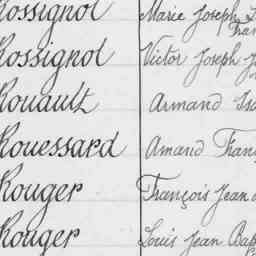 Rossignol Marie Joseph
Rossignol Victor Joseph
Rouault Armand
Rouessard Amand
Rouger François Jean
Rouger Louis Jean